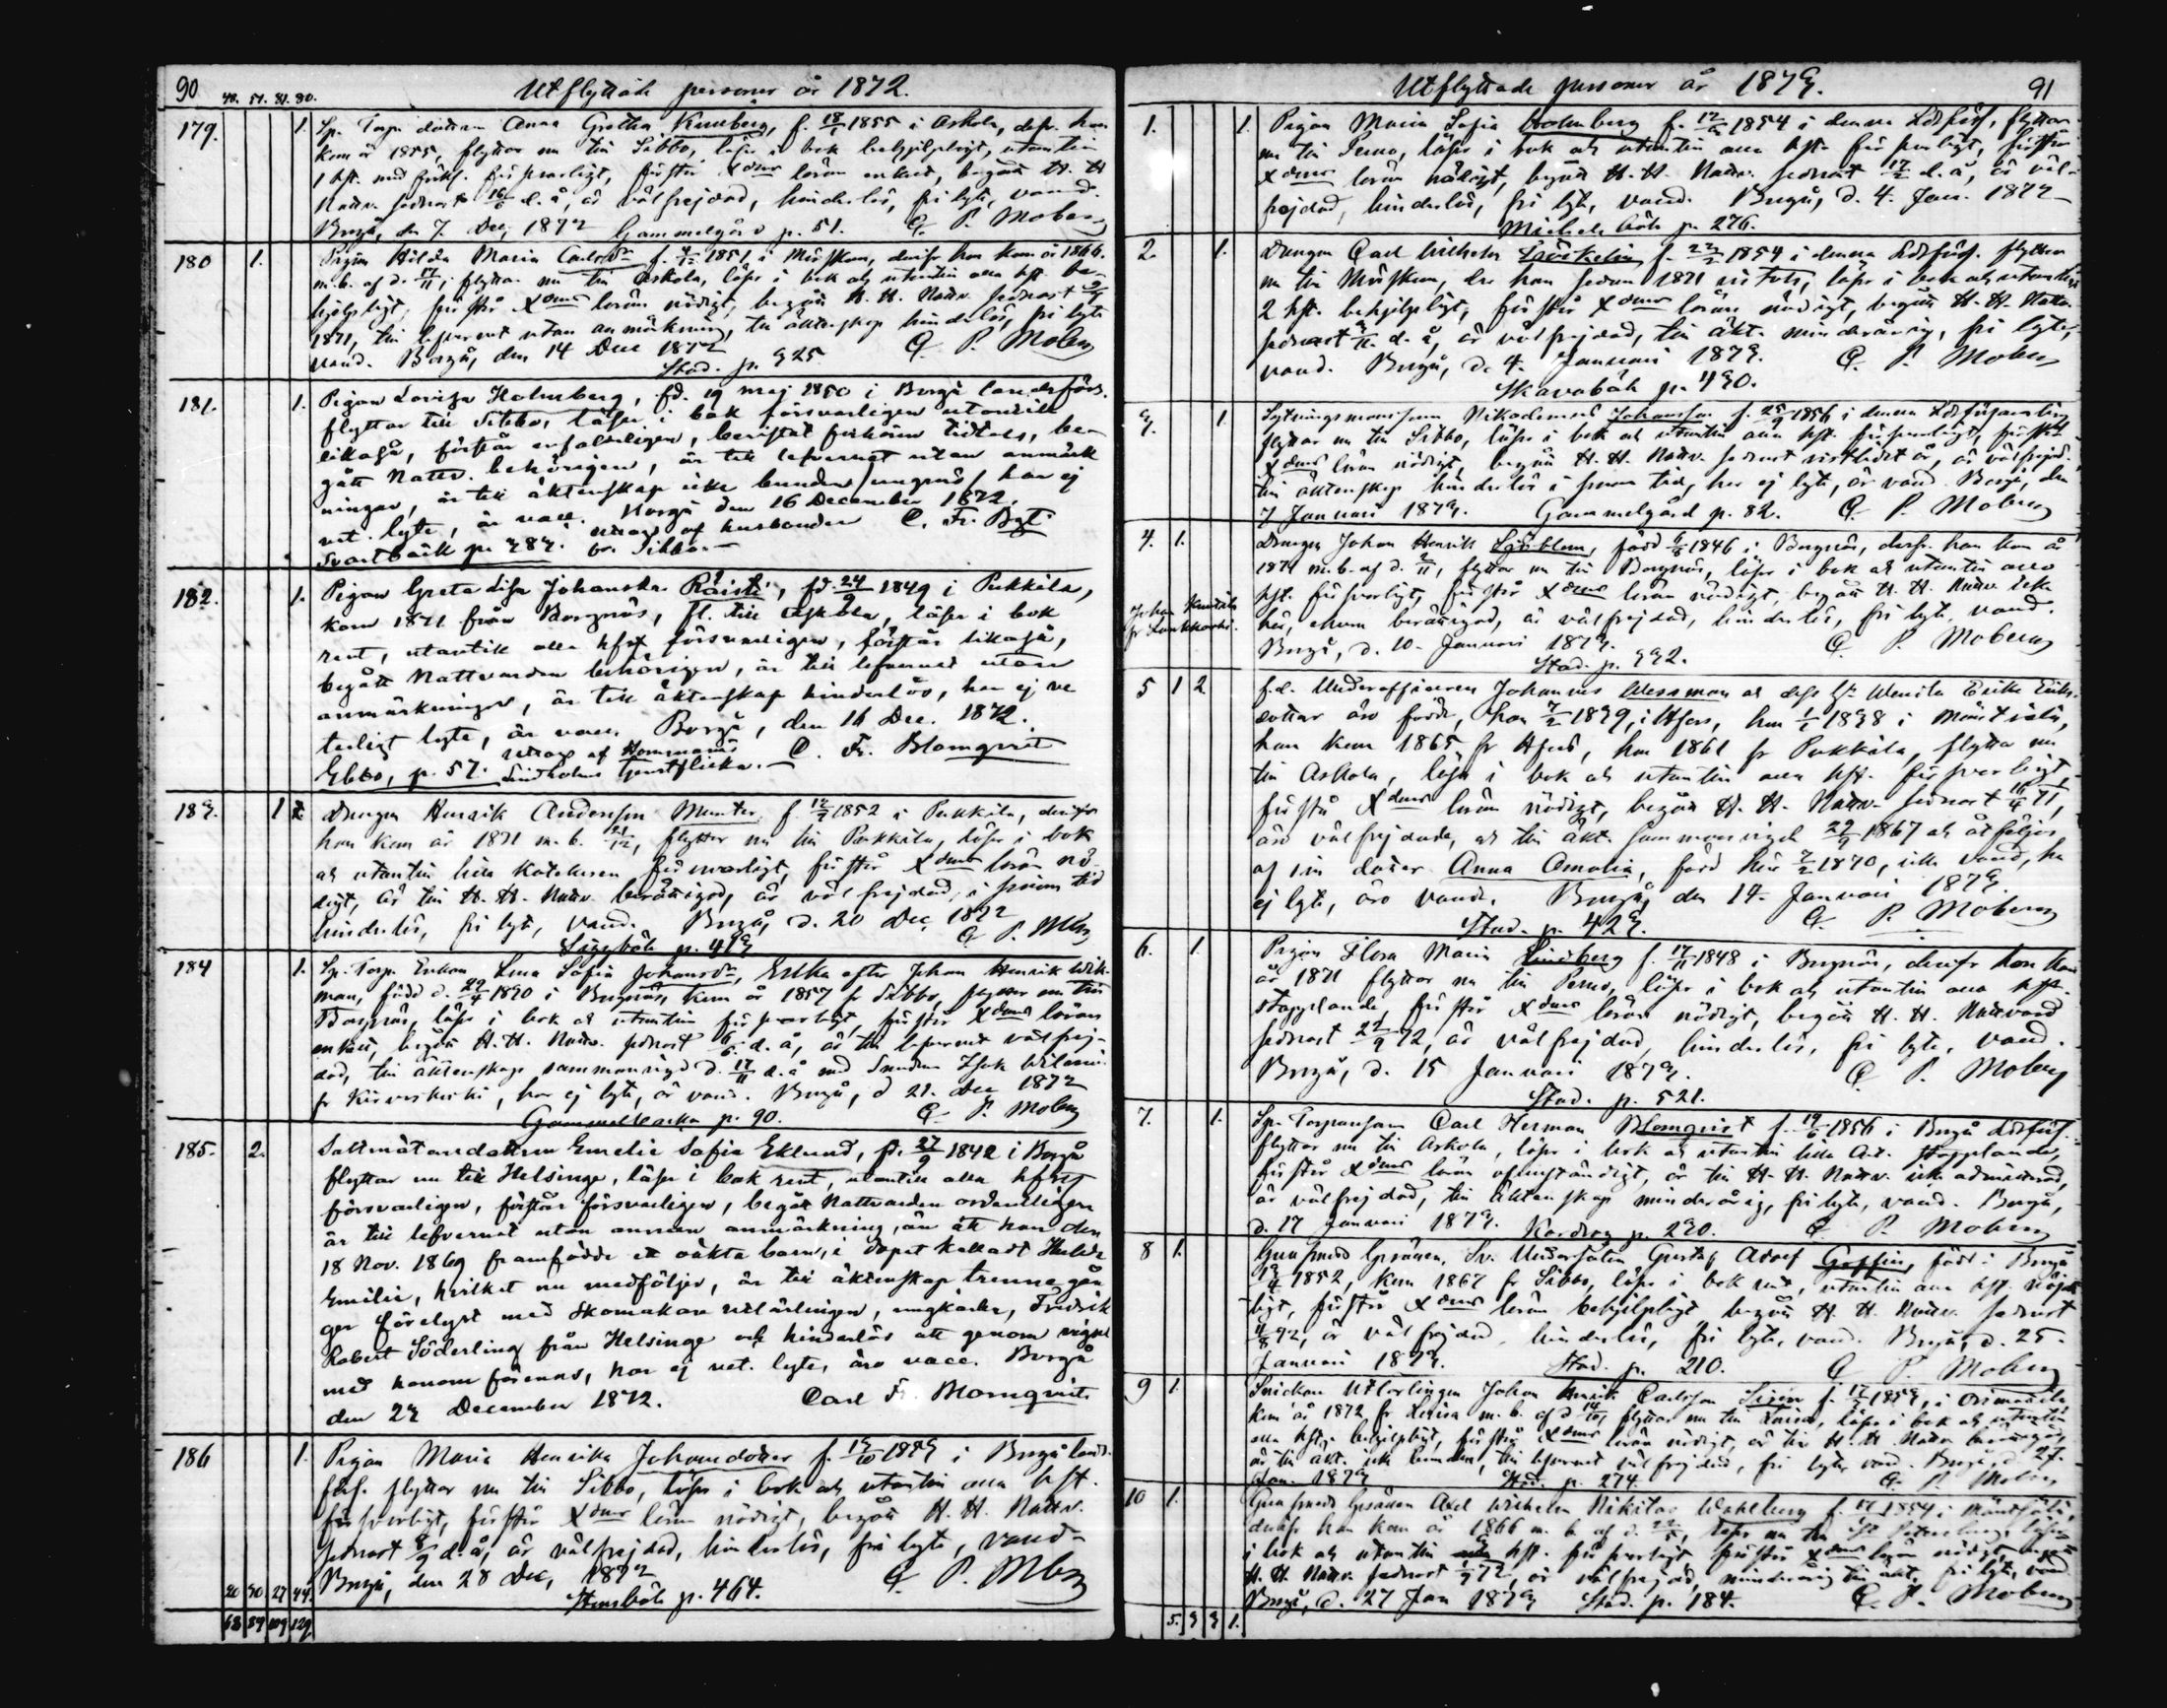 90 Utflyttade personer år 1872.
48. 51. 81. 80.
179. 1. Sp. Torp. dottren Anna Gretha f. 18/1 1855 i Askola, defr. hon
kom år 1855, flyttar nu till Sibbo, läser i bok behjelpligt, utantill
1 hft. med förkl. försvarligt, förstår Xdoms läran enkelt, begått H. H.
Nattv. sednast 16/6 d. å, är välfrejdad, hinderlös, fri lyte, vacc.
Borgå, den 7. Dec. 1872 Gammelgård p. 51. C. P. Moberg
180 1. Pigan Hilda Maria Carlsdr f. 1851 i Mörskom, derifr hon kom år 1866.
m. b. af d. 17/11, flyttar nu till Askola, läser i bok och utantill alla hft. be-
hjelpligt, förstår Xdoms läran nödigt, begått H. H. Nattv. sednast
1871, till lefvernet utan anmärkning, till äktenskap hinderlös, fri lyte
vacc. Borgå, den 14 Dec 1872 C. P. Moberg
Stad. p. 325
181. 1. Pigan Lovisa Holmberg, fd. 19 maj 1850 i Borgå landsförs.
flyttar till Sibbo, läser i bok försvarligen utantill
likaså, förstår enfaldeligen, bevistat förhören tidtals, be-
gått Nattv. behörigen, är till lefvernet utan anmärk
ningar, är till äktenskap icke bunden/ungmö/ har ej
vet. lyte, är vacc. Borgå den 16 December 1872.
Svartbäck p. 383. uttogs af husbonden C. Fr. Bqt
fr. Sibbo.
182. 1. Pigan Greta Lisa Johanna Räisti, fd 24/9 1849 i Pukkila,
kom 1871 från Borgnäs, fl. till Askola, läser i bok
rent, utantill alla hfst försvarligen, förstår likaså,
begått Nattvarden behörigen, är till lefvernet utan
anmärkningar, är till äktenskap hinderlös, har ej ve
terligt lyte, är vacc. Borgå, den 16 Dec. 1872.
Ebbo, p. 57. uttogs af Hommanäs C. Fr. Blomqvist
Lindholms tjenstflicka.
183. 1 Drengen Henrik Andersson Munter f. 12/7 1852 i Pukkila, derifr
han kom år 1871 m. b. 21/12, flyttar nu till Pukkila, läser i bok
och utantill hela Katekesen försvarligt, förstår Xdoms läran nö-
digt, är till H. H. Nattv. berättigad, är välfrejdad, i senare tid
hinderlös, fri lyte, vacc. Borgå, d. 20 Dec. 1872
C. P. Mbg
184 1. Sp. Torp. Enkan Lena Sofia Johansdr, Enka efter Johan Henrik Wik-
man, född d. 22/4 1830 i Borgnäs, kom år 1857 fr Sibbo, flyttar nu till
Borgnäs, läser i bok och utantill försvarligt, förstår Xdoms läran
enkelt, begått H. H. Nattv. sednast 6/6 d. å, är till lefvernet välfrej-
dad, till äktenskap sammanvigd d. 17/11 d. å med Isak
fr , har ej lyte, är vacc. Borgå, d 21. Dec 1872
Gammelbacka p. 90. C. P. Moberg
185. 2. Emelie Sofia Eklund, fd. 27/9 1842 i Borgå
flyttar nu till Helsinge, läser i bok rent, utantill alla hfst
försvarligen, förstår försvarligen, begår Nattvarden ordentligen
är till lefvernet utan annan anmärkning, än att hon den
18 Nov. 1869 framfödde ett oäkta barn, i dopet kalladt Hulda
Emilia, hvilket nu medföljer, är till äktenskap trenne gån
ger förelyst med Skomakare utlärlingen, ungkarlen, Fredrik
Robert Söderling från Helsinge och hinderlös att genom vigsel
med honom förenas, har ej vet. lyte, äro vacc. Borgå
den 23 December 1872. Carl Fr. Blomqvist
186 1. Pigan Maria Henrika Johansdotter f. 13/10 i Borgå lands-
förs. flyttar nu till Sibbo, läser i bok och utantill alla hft.
försvarligt, förstår Xdoms läran nödigt, begått H. H. Nattv.
sednast 8/9 d. å, är välfrejdad, hinderlös, fri lyte, vacc.
Borgå, den 28 Dec, 1872 C. P. Mbg
Stensböle p. 464.
20 30 27 44.
68 89 109 129
Utflyttade personer år 1873. 91
1. 1. Pigan Maria Sofia Holmberg f. 1854 i denna Ldsförs, flyttar
nu till Perno, läser i bok och utantill alla hft. försvarligt, förstår
Xdoms läran nödigt, begått H. H. Nattv. sednast d. å, är väl-
frejdad, hinderlös, fri lyte, vacc. Borgå, d. 4. Jan. 1873
Mickelsböle p. 276.
2. 1. Drengen Carl Wilhelm f. 1854 i denna Ldsförs. flyttar
nu till Mörskom, der han sedan 1871 vistats, läser i bok och utantill
2 hft. behjelpligt, förstår Xdoms läran nödigt, begått H. H. Nattv.
sednast d. å, är välfrejdad, till äkt. minderårig, fri lyte,
vacc. Borgå, d. 4. Januari 1873. C. P. Moberg
Skavaböle p. 430.
3. 1. Nikodemus Johansson f. 25/9 1856 i denna Ldsförsamling
flyttar nu till Sibbo, läser i bok och utantill alla hft. försvarligt, förstår
Xdoms läran nödigt, begått H. H. Nattv. sednast sistledet år, är välfrejd.
till äktenskap hinderlös i senare tid, har ej lyte, är vacc. Borgå, den
7 Januari 1873. Gammelgård p. 82. C. P. Moberg
4. 1. Drengen Johan Henrik Sjöblom, född 1846 i Borgnäs, derfr. han kom år
1871 m. b. af d. 2/11, flyttar nu till Borgnäs, läser i bok och utantill alla
hft. försvarligt, förstår Xdoms läran nödigt, begått H. H. Nattv. icke
här, ehuru berättigad, är välfrejdad, hinderlös, fri lyte, vacc.
Borgå, d. 10. Januari 1873. C. P. Moberg
Stad. p. 332.
5 1 2 f. d. Underofficeren Johannes Wessman och dess h. Erika Eriks-
dotter äro födde, han 7/2 1839, i Hfors, hon 1/1 1838 i Mäntsälä,
han kom 1865 fr Hfors, hon 1861 fr Pukkila, flytta nu
till Askola, läsa i bok och utantill alla hft. försvarligt,
förstå Xdoms läran nödigt, begått H. H. Nattv. sednast 71,
äro välfrejdade, och till äkt. sammanvigd 29/9 1867 och åtföljes
af sin dotter Anna Amalia, född här 1870, icke vacc, ha
ej lyte, äro vacc. Borgå, den 14 Januari 1873.
Stad. p. 423. C. P. Moberg
6. 1. Pigan Flora Maria Lindberg f. 17/11 1848 i Borgnäs, derifr hon kom
år 1871 flyttar nu till Perno, läser i bok och utantill alla hft.
stapplande, förstår Xdoms läran nödigt, begått H. H. Nattvard
sednast 22/9 72, är välfrejdad, hinderlös, fri lyte, vacc.
Borgå, d. 15 Januari 1873. C. P. Moberg
Stad. p. 521.
7. 1. Sp. Torparesson Carl Herman Blomqvist f. 19/6 1856 i Borgå Ldsförs.
flyttar nu till Askola, läser i bok och utantill lilla Cat. stapplande,
förstår Xdoms läran ofullständigt, är till H. H. Nattv. icke admitterad,
är välfrejdad, till äktenskap minderårig, fri lyte, vacc. Borgå,
d. 17 Januari 1873. Kardrag p. 230. C. P. Moberg
8 1. Gesällen, Sv. Undersåten Gustaf Adolf född i Borgå
1852, kom 1867 fr Sibbo, läser i bok rent, utantill alla hft. nöjak
ligt, förstår Xdoms läran behjelpligt begått H. H. Nattv. sednast
11/8 72, är välfrejdad, hinderlös, fri lyte, vacc. Borgå, d. 25.
Januari 1873. Stad. p. 210. C. P. Moberg
9 1. Snickare Utlärlingen Johan Henrik Carlsson f. 17/ i Orimattila
kom år 1872 fr Lovisa m. b. af d 14/10, flyttar nu till Lovisa, läser i bok och utantill
alla hft. behjelpligt, förstår Xdoms läran nödigt, är till H. H. Nattv berättigad,
är till äkt. icke bunden, till lefvernet välfrejdad, fri lyte vacc. Borgå, d 27.
Jan. 1873 Stad. p. 274. C. P. Moberg
10 1. Gesällen Axel Wilhelm Nikitas Wahlberg f. 1854 i Mäntsälä,
derifr han kom år 1866 m. b. af d. 22/5, nu till
i bok och utantill hft. försvarligt förstår Xdoms läran nödigt
H. H. Nattv sednast 72, är välfrejdad, minderårig till äkt, fri lyte, vacc
Borgå, d. 27 Jan 1873 Stad. p. 184. C. P. Moberg
5. 3 3 1.